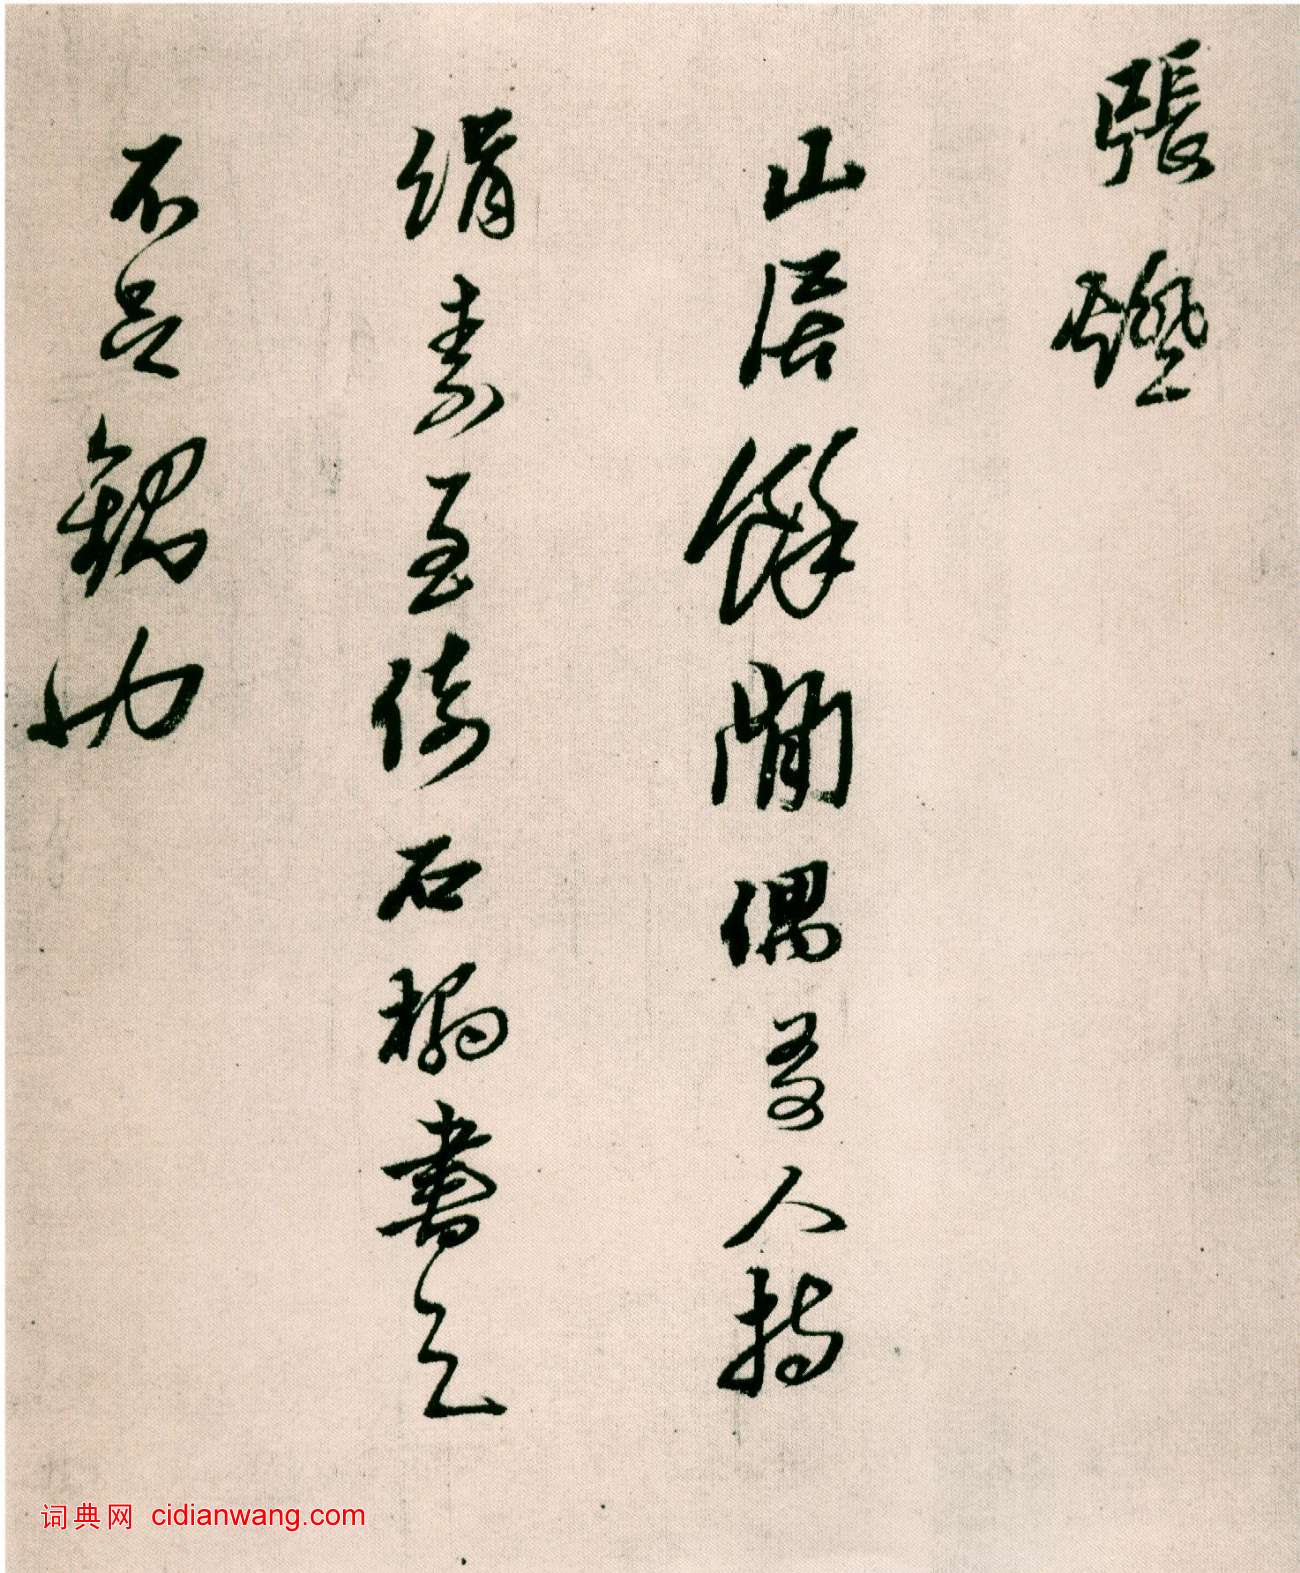 張燈
山居餘閒偶爲人持
絹素至倚石榻書之
不足觀也
词典网 cidianwang.com